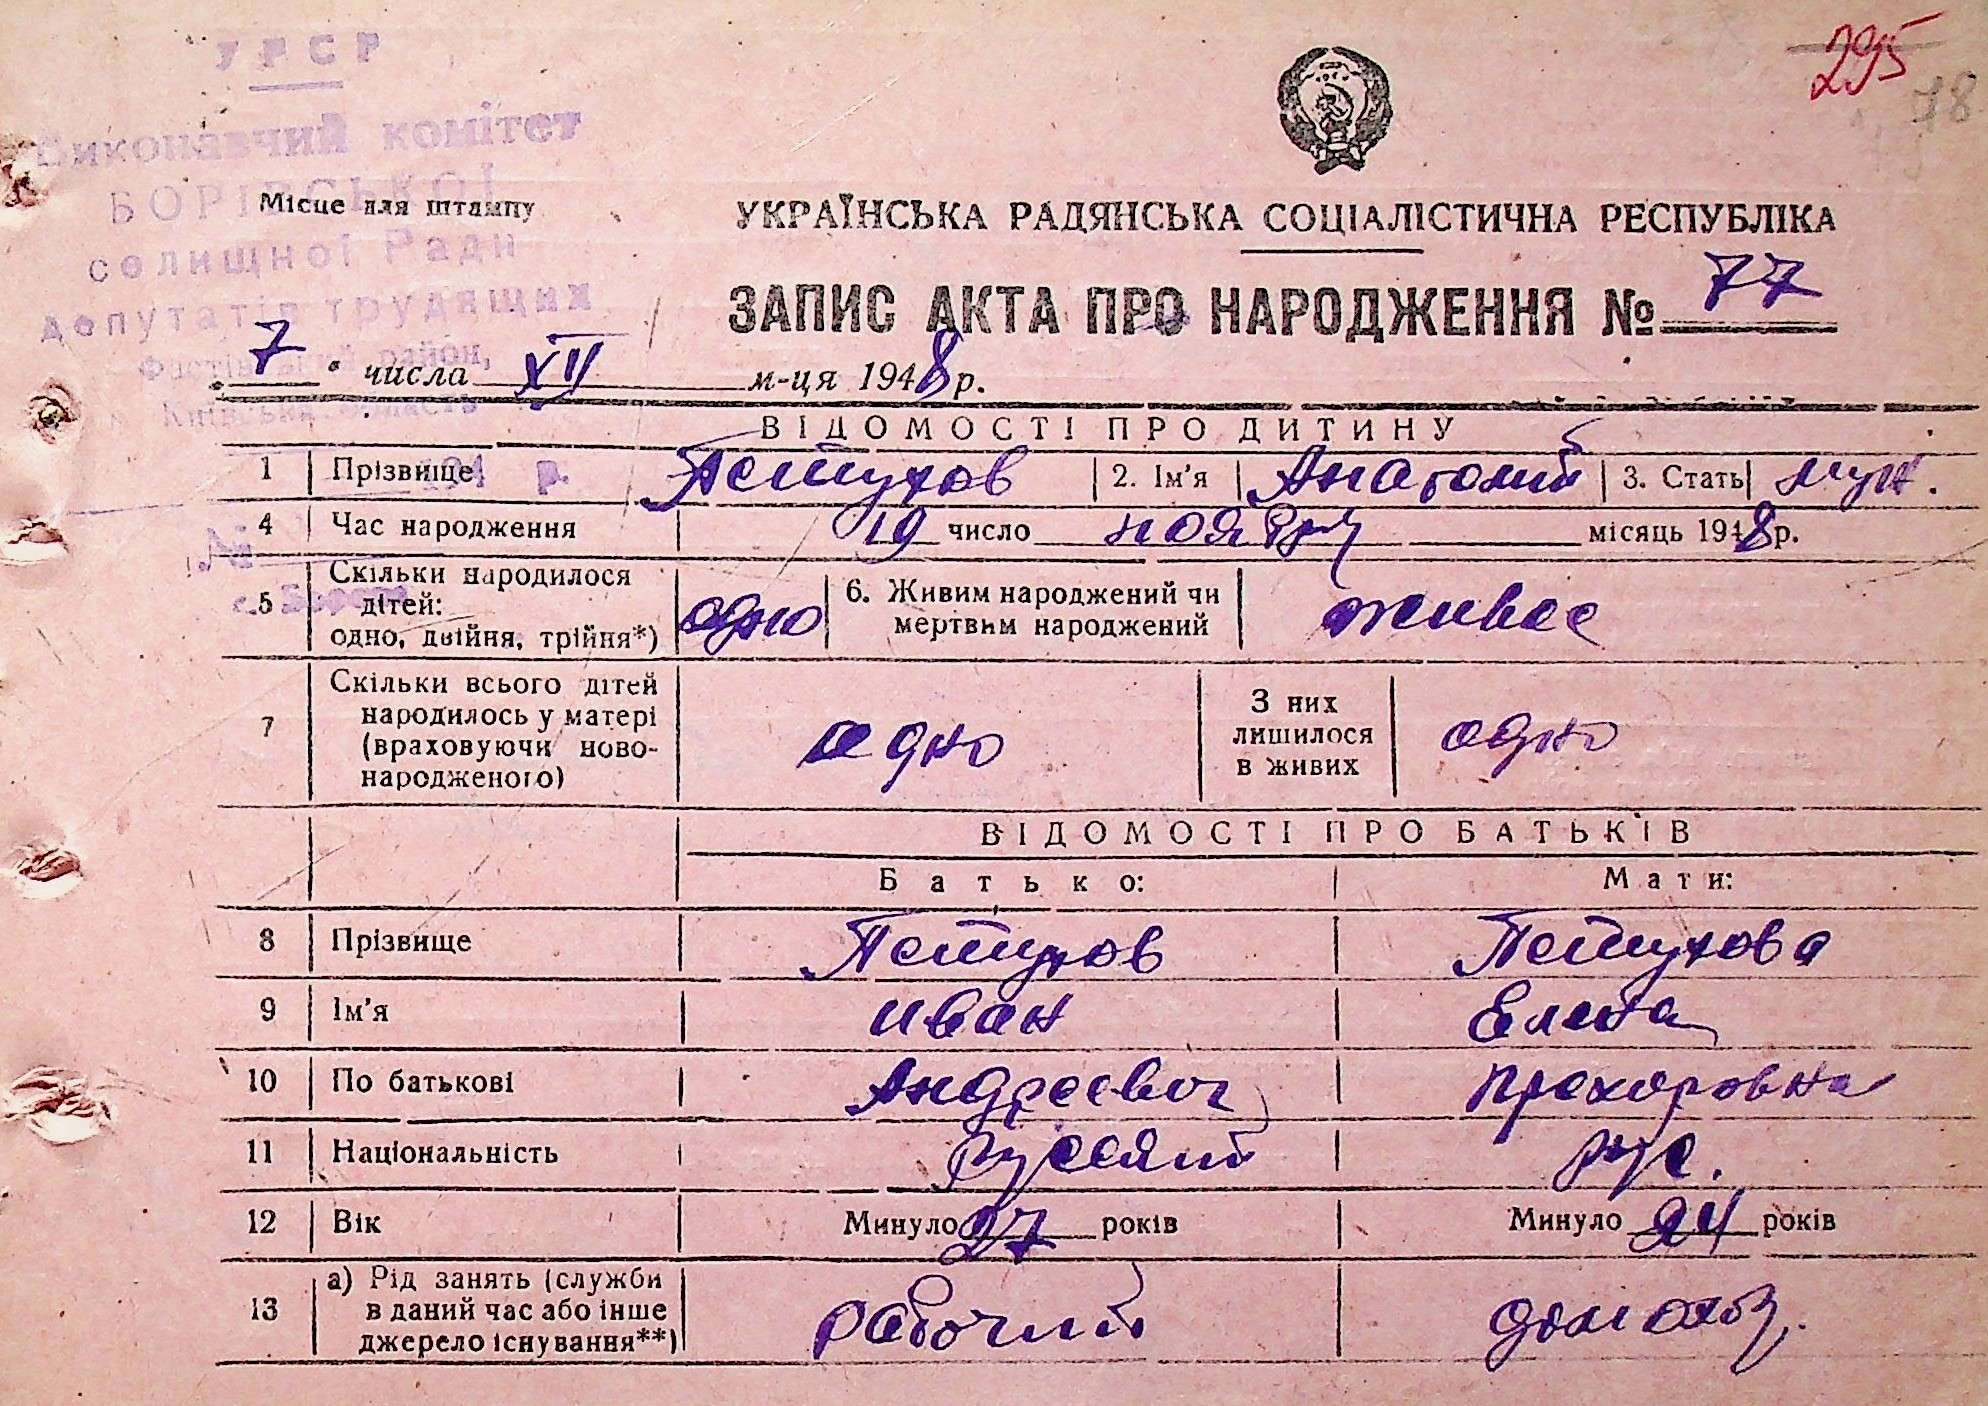 УРСР
295
78
Виконавчий комітет
БОРІВСЬКОЇ
Місце для штампу
УКРАЇНСЬКА РАДЯНСЬКА СОЦІАЛІСТИЧНА РЕСПУБЛІКА
селищної Ради
депутатів трудящих
ЗАПИС АКТА ПРО НАРОДЖЕННЯ № 77
Фастівський район,
„7" числа XII м-ця 1948 р.
Київська область
ВІДОМОСТІ ПРО ДИТИНУ
1 Прізвище Петухов 2. Ім'я Анатолий 3. Стать муж.
194 р.
4 Час народження 19 число ноября місяць 1948 р.
№
5 Скільки народилося дітей: одно, двійня, трійня*) одно 6. Живим народжений чи мертвим народжений живое
7 Скільки всього дітей народилось у матері (враховуючи ново-народженого) одно З них лишилося в живих одно
ВІДОМОСТІ ПРО БАТЬКІВ
Батько: Мати:
8 Прізвище Петухов Петухова
9 Ім'я Иван Елена
10 По батькові Андреевич Прохоровна
11 Національність русский рус.
12 Вік Минуло 27 років Минуло 24 років
13 а) Рід занять (служби в даний час або інше джерело існування**) рабочий домохоз.